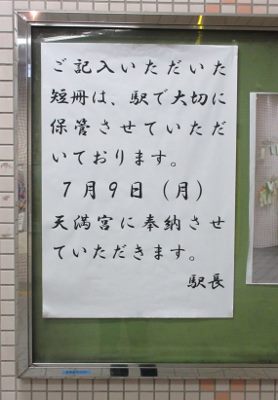 ご記入いただいた
短冊は、駅で大切に
保管させていただ
いております。
7月9日（月）
天満宮に奉納させ
ていただきます。
駅長